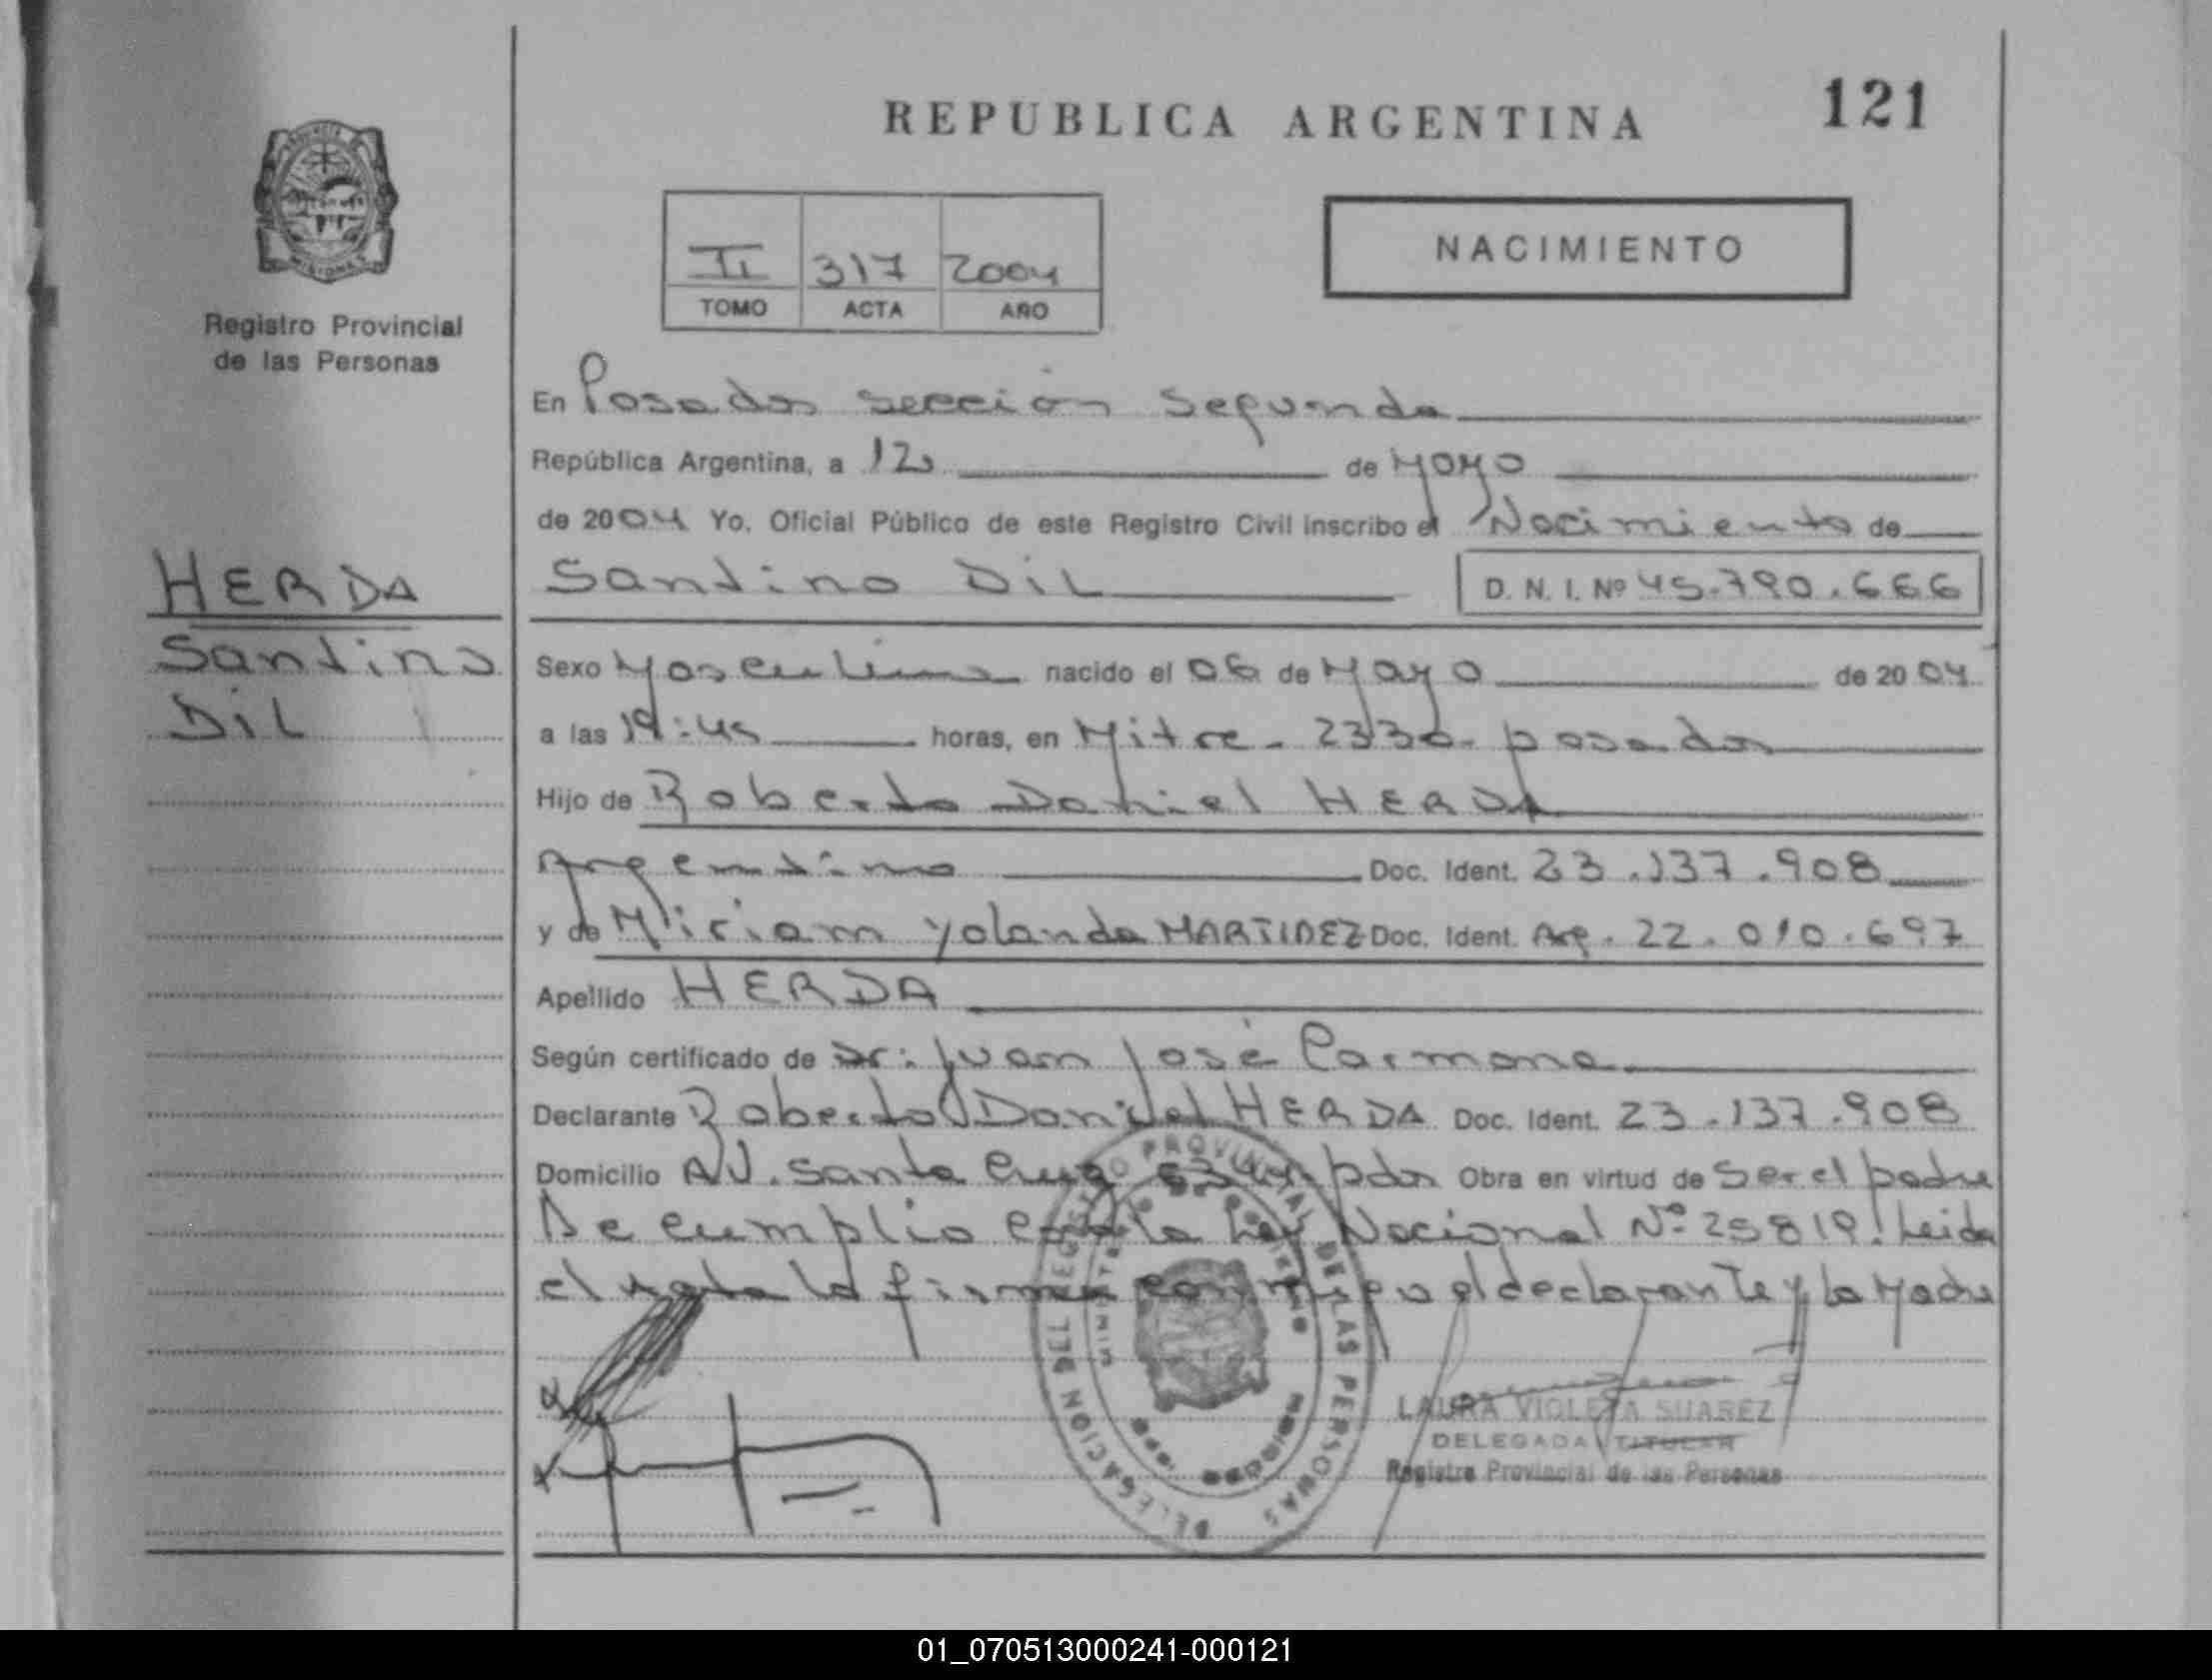 REPUBLICA ARGENTINA
121
PROVINCIA DE
MISIONES
Registro Provincial
de las Personas
II 317 2004
TOMO ACTA AÑO
NACIMIENTO
En Posadas sección Segunda
República Argentina, a 12 de Mayo
de 2004 Yo. Oficial Público de este Registro Civil inscribo el Nacimiento de
HERDA
Santino
Dil
Santino Dil
D. N. I. Nº 45.790.666
Sexo Masculino nacido el 06 de Mayo de 2004
a las 19:45 horas, en Mitre - 2330 - posadas
Hijo de Roberto Daniel HERDA
Argentino Doc. Ident. 23.137.908
y de Miriam Yolanda MARTINEZ Doc. Ident. Arg. 22.010.697
Apellido HERDA
Según certificado de Dr: Juan José Carmona
Declarante Roberto Daniel HERDA Doc. Ident. 23.137.908
Domicilio AV. Santa Cruz pdas Obra en virtud de Ser el padre
Se cumplio con la Ley Nacional Nº 25819. Leida
el acta la firman conmigo el declarante y la Madre
DELEGACION DEL REGISTRO PROVINCIAL DE LAS PERSONAS
MINISTERIO DE GOBIERNO
MISIONES
LAURA VIOLETA SUAREZ
DELEGADA TITULAR
Registro Provincial de las Personas
01_070513000241-000121